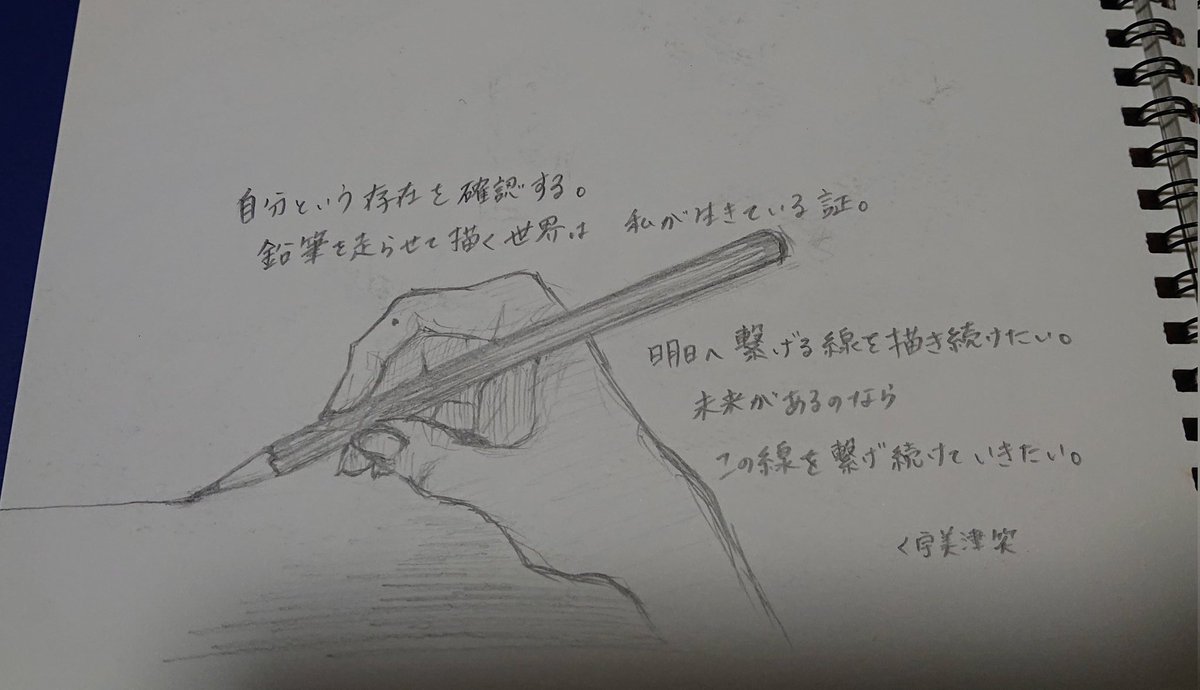 自分という存在を確認する。
鉛筆を走らせて描く世界は 私が生きている証。
明日へ繋げる線を描き続けたい。
未来があるのなら
この線を繋げ続けていきたい。
く宇美津笑